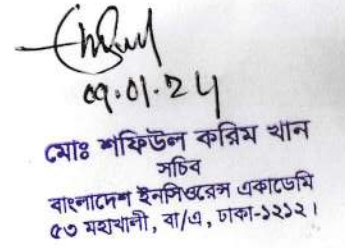 ০৭.০১.২৪
মোঃ শফিউল করিম খান
সচিব
বাংলাদেশ ইনসিওরেন্স একাডেমি
৫৩ মহাখালী, বা/এ, ঢাকা-১২১২।